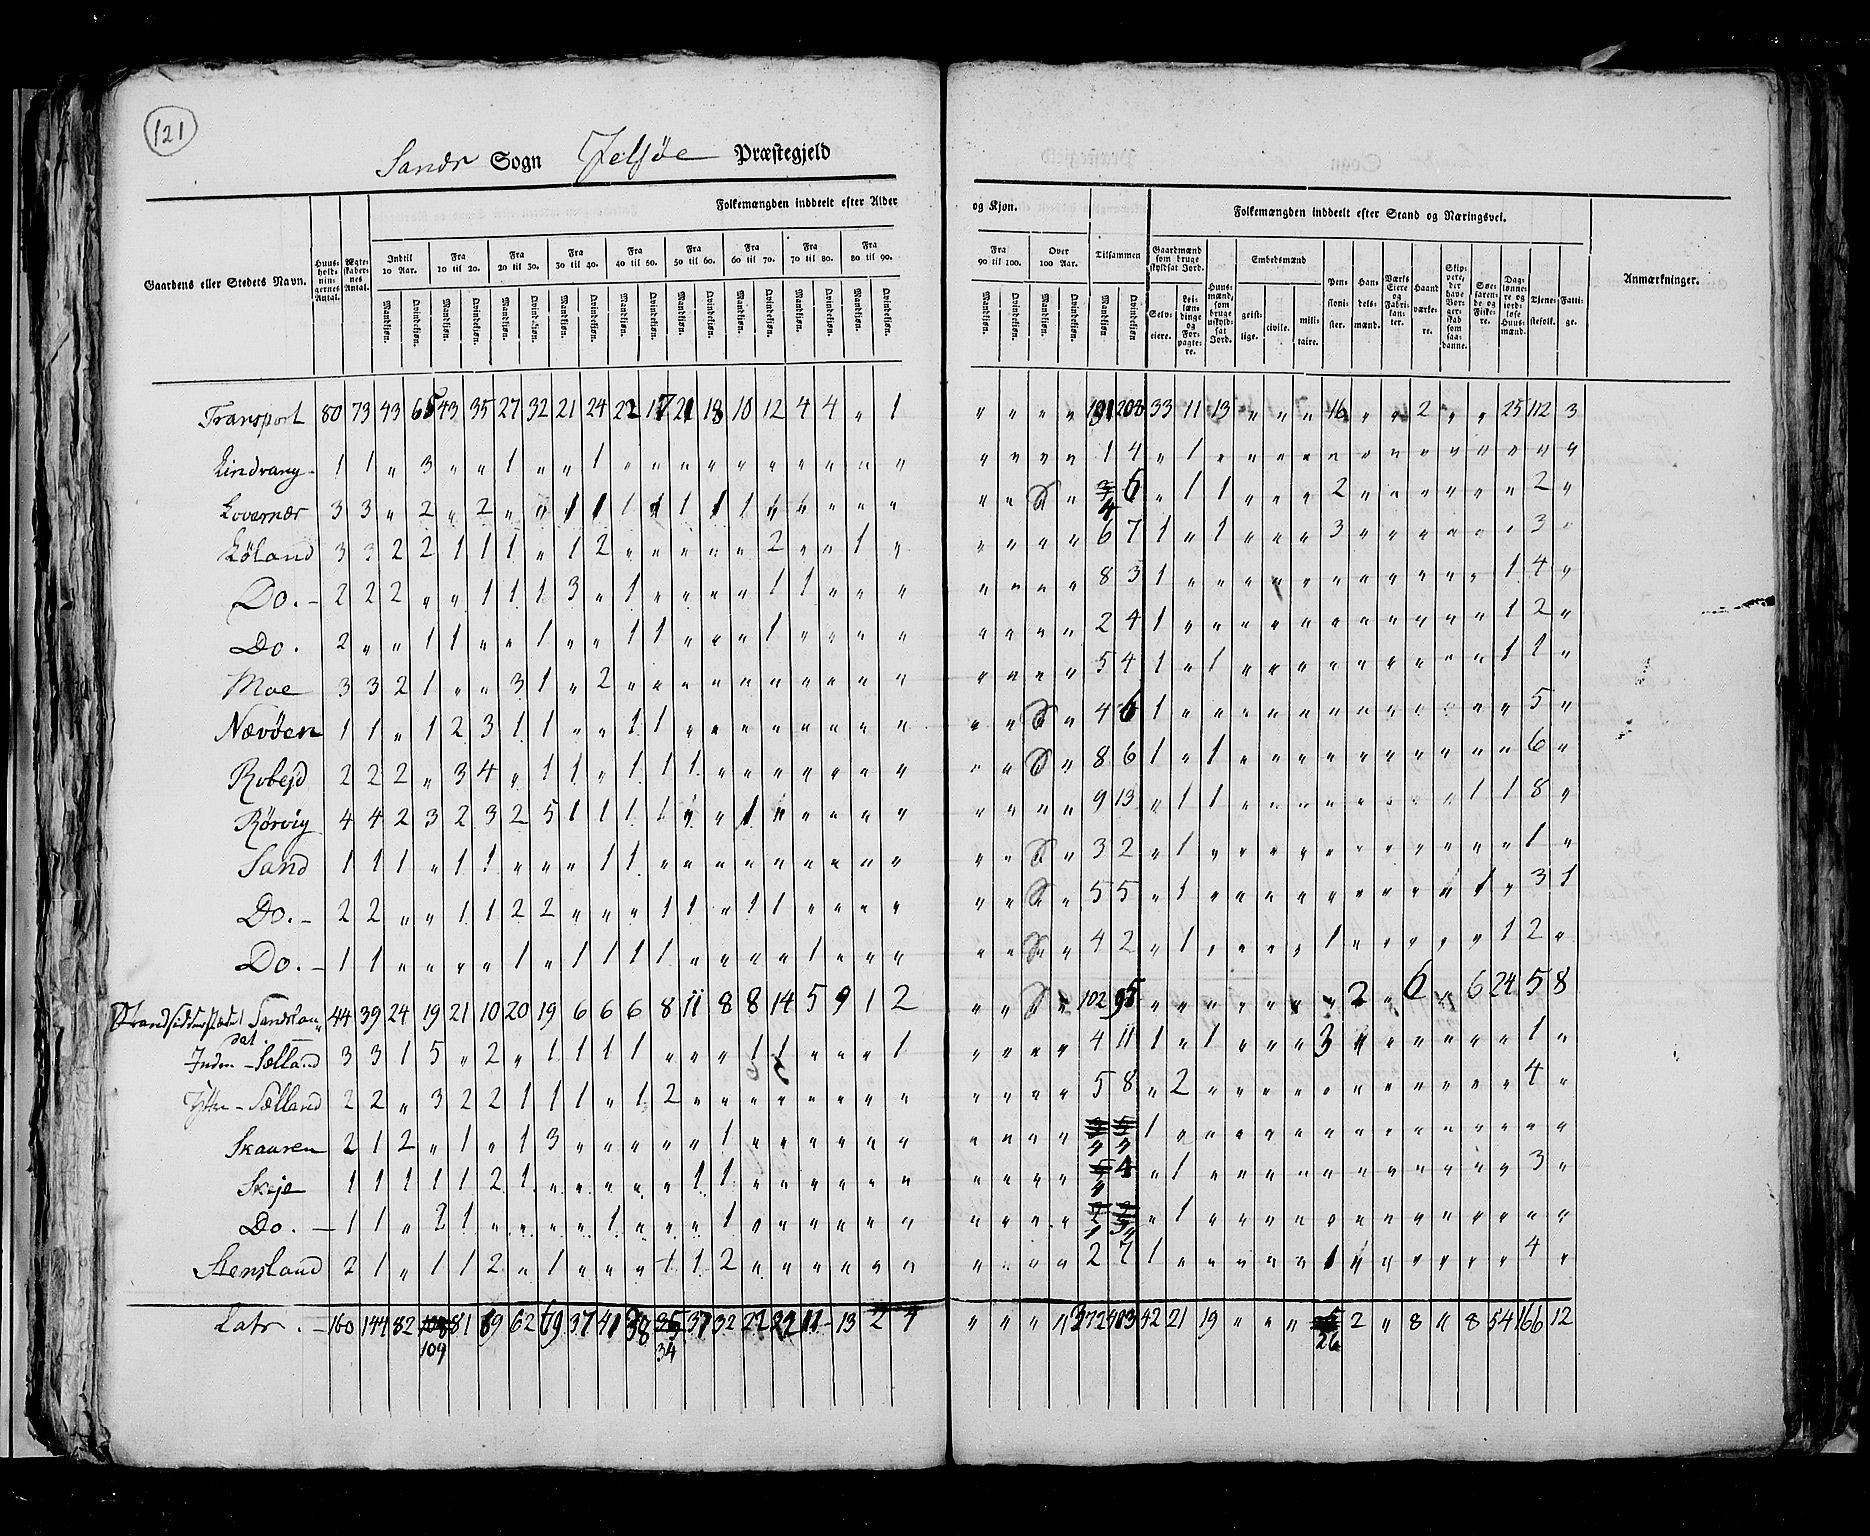 121
Sands Sogn Jelsøe Præstegjeld
Folkemængden inddeelt efter Alder og Kjøn. Tilsammen Folkemængden inddeelt efter Stand og Næringsvei.
Gaardens eller Stedets Navn. Huusholdningernes Antal. Ægteskabernes Antal. Indtil 10 Aar. Fra 10 til 20. Fra 20 til 30. Fra 30 til 40. Fra 40 til 50. Fra 50 til 60. Fra 60 til 70. Fra 70 til 80. Fra 80 til 90. Fra 90 til 100. Over 100 Aar. Gaardmænd som bruge skyldsat Jord. Huusmænd, som bruge uskyldsat Jord. Embedsmænd Pensionister. Handelsmænd. Værks Eiere og Fabrikanter. Haandværkere. Skippere, der have Borgerskab som saadanne. Søefarende og Fiskere. Daglønnere og jordløse Huusmænd. Tjenestefolk. Fattige. Anmærkninger.
Mandkjøn. Qvindekjøn. Mandkjøn. Qvindekjøn. Mandkjøn. Qvindekjøn. Mandkjøn. Qvindekjøn. Mandkjøn. Qvindekjøn. Mandkjøn. Qvindekjøn. Mandkjøn. Qvindekjøn. Mandkjøn. Qvindekjøn. Mandkjøn. Qvindekjøn. Mandkjøn. Qvindekjøn. Mandkjøn. Qvindekjøn. Mandkjøn Qvindekjøn Selveiere. Leilændinge og Forpagtere. geistlige. civile. militaire.
Transport 80 73 43 65 43 35 27 32 21 24 22 17 21 18 10 12 4 4 " 1 " " " " 191 208 33 11 13 " " " 16 " " 2 " " 25 112 3
Lindvang - 1 1 " 3 " " 1 " " 1 " " " " " " " " " " " " " " 1 4 " 1 " " " " " " " " " " " " "
Lovernær 3 3 " 2 " 2 " " 1 1 1 1 1 1 1 " " " " " " " " 4 6 " 1 1 " " " 2 " " " " " " 2 "
Løland 3 3 2 2 1 1 1 " 1 2 " " " " " 2 " " 1 " " " " " 6 7 1 " 1 " " " 3 " " " " " " 3 "
Do. - 2 2 2 " " 1 1 1 3 " 1 " " " " 1 1 " " " " " " " 8 3 1 " " " " " " " " " " " 1 4 "
Do. 2 " " 1 1 " " 1 " " 1 1 " " " 1 " " " " " " " " 2 4 1 " " " " " " " " " " " 1 2 "
Moe 3 3 2 1 " " 3 1 " 2 " " " " " " " " " " " " " " 5 4 1 " 1 " " " " " " " " " 1 1 "
Nævøen 1 1 " 1 2 3 1 1 " " 1 1 " " " " " " " " " " " 4 6 1 " " " " " " " " " " " " 5 "
Robejd 2 2 2 " 3 4 " 1 1 " 1 1 1 " " " " " " " " " " 8 6 1 " 1 " " " " " " " " " " 6 "
Rørvig 4 4 2 3 2 3 2 5 1 1 1 1 " " 1 " " " " " " " " " 9 13 " 1 1 " " " " " " " " 1 1 8 "
Sand 1 1 1 " 1 1 " " " 1 1 " " " " " " " " " " " " 3 2 " 1 " " " " " " " " " " " 1 "
Do. - 2 2 " " 1 1 2 2 " " " 1 1 " 1 1 " " " " " " " 5 5 " 1 " " " " " " " " " 1 " 3 1
Do. - 1 1 " " " " 1 " 1 1 1 1 " " " " 1 " " " " " " 4 2 " 1 " " " " 1 " " " " " 1 2 "
Strandsidderstædet Sands 44 39 24 19 21 10 20 19 6 6 6 8 11 8 8 14 5 9 1 2 " " " 102 95 " " " " " " " 2 " 6 " 6 24 5 8
Inden - Sælland 3 3 1 5 " 2 " 1 1 1 1 " " " 1 1 " " " 1 " " " " 4 11 1 " 1 " " " 3 " " " " " " 1 "
Ytter - Sælland 2 2 " 3 2 2 1 1 1 " 1 2 " " " " " " " " " " " " 5 8 " 2 " " " " " " " " " " " 4 "
Skauren 2 1 2 " 1 " 1 3 " " " " " 1 " " " " " " " " " " 1 " " " " " " " " " " " " " "
Skeje 1 1 1 1 1 2 1 " " " " " 1 1 " " " " " " " " " " 4 " 1 " " " " " " " " " " " 3 "
Do. - 1 1 " 2 1 " " " " 1 " " " 1 " " " " " " " " " " " 1 " " " " " " " " " " " " "
Stensland 2 1 " 1 1 2 " 1 " " " 1 1 2 " " " " " " " " " " 2 7 1 " " " " " 1 " " " " " " 4 "
Latr. - 160 144 82 109 81 69 62 69 37 41 38 34 37 32 22 32 11 13 2 4 " " " " 372 403 42 21 19 " " " 26 2 " 8 " 8 54 166 12